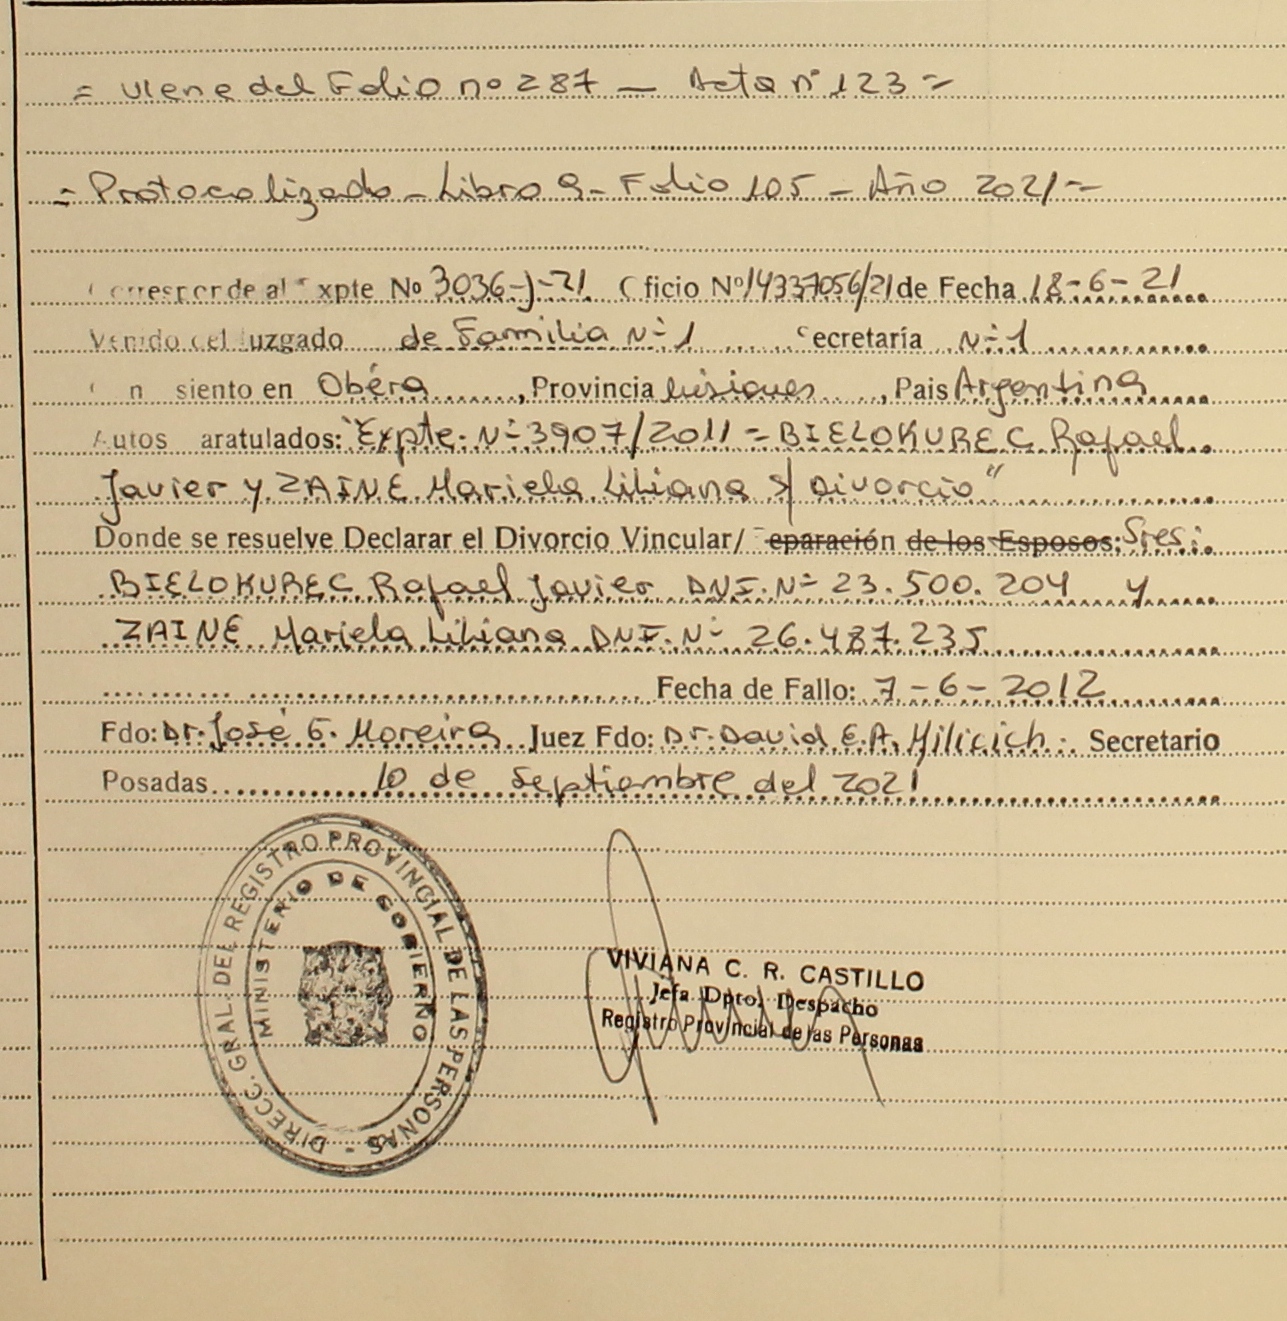 = Viene del Folio nº 287 — Acta nº 123 =
= Protocolizado - Libro 9 - Folio 105 - Año 2021 =
Corresponde al Expte Nº 3036-J-21 Oficio Nº 14337056/21 de Fecha 18-6-21
Venido del Juzgado de Familia Nº 1 Secretaría Nº 1
Con asiento en Oberá, Provincia Misiones, Pais Argentina
Autos caratulados: "Expte. Nº 3907/2011 = BIELOKUREC Rafael
Javier y ZAINE Mariela Liliana s/ Divorcio"
Donde se resuelve Declarar el Divorcio Vincular/ Separación de los Esposos: Sres:
BIELOKUREC Rafael Javier DNI. Nº 23.500.204 y
ZAINE Mariela Liliana DNI. Nº 26.487.235
Fecha de Fallo: 7-6-2012
Fdo: Dr. José G. Moreira Juez Fdo: Dr. David E.A. Milicich. Secretario
Posadas 10 de Septiembre del 2021
DIRECC. GRAL. DEL REGISTRO PROVINCIAL DE LAS PERSONAS -
MINISTERIO DE GOBIERNO
VIVIANA C. R. CASTILLO
Jefa Dpto. Despacho
Registro Provincial de las Personas